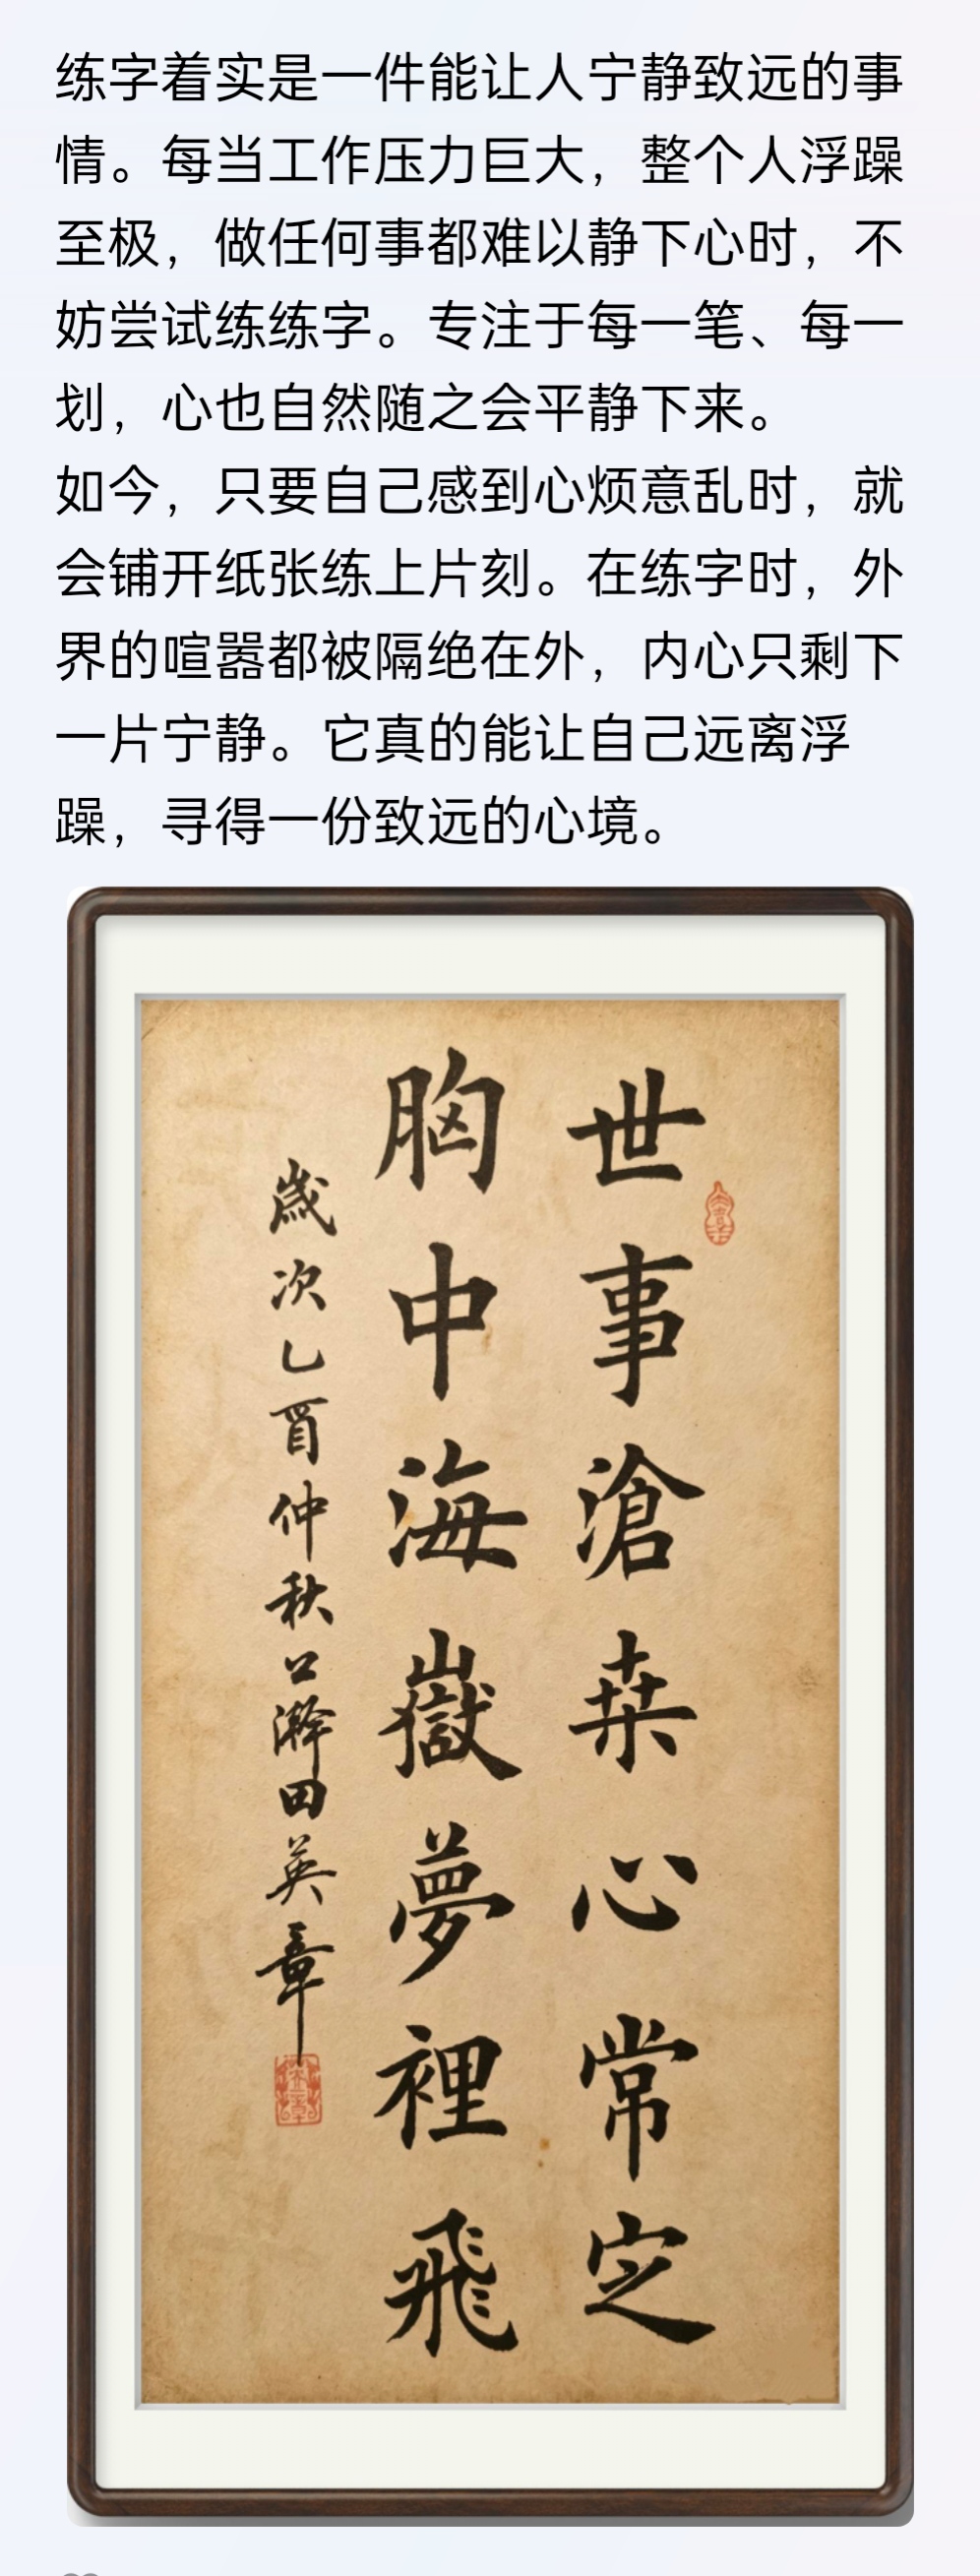 练字着实是一件能让人宁静致远的事
情。每当工作压力巨大，整个人浮躁
至极，做任何事都难以静下心时，不
妨尝试练练字。专注于每一笔、每一
划，心也自然随之会平静下来。
如今，只要自己感到心烦意乱时，就
会铺开纸张练上片刻。在练字时，外
界的喧嚣都被隔绝在外，内心只剩下
一片宁静。它真的能让自己远离浮
躁，寻得一份致远的心境。
世事滄桒心常定
胸中海嶽夢裡飛
歲次乙酉仲秋 田英章